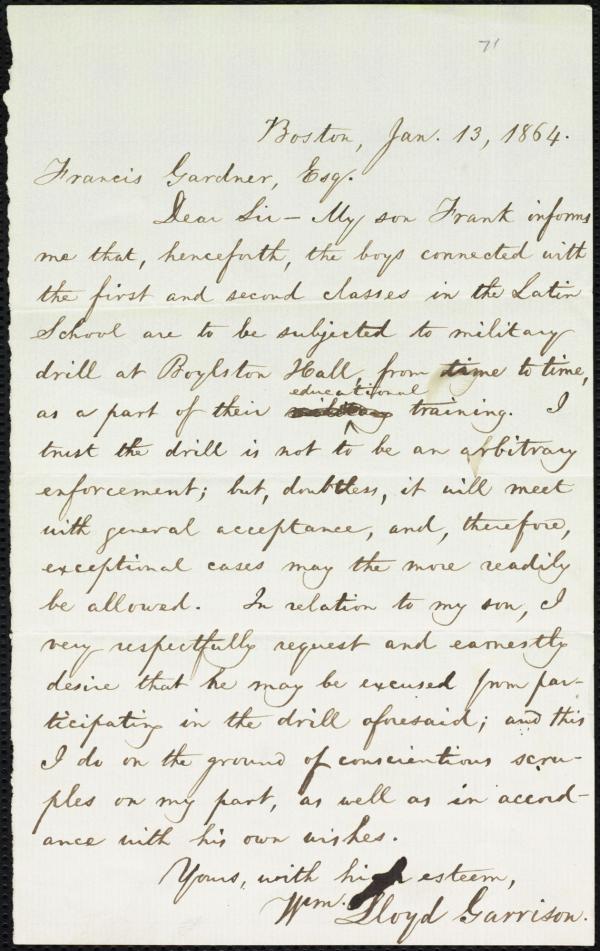 71
Boston, Jan. 13, 1864.
Francis Gardner, Esq.
Dear Sir – My son Frank informs
me that, henceforth, the boys connected with
the first and second classes in the Latin
School are to be subjected to military
drill at Boylston Hall, from time to time,
educational
as a part of their military training. I
trust the drill is not to be an arbitrary
enforcement; but, doubtless, it will meet
with general acceptance, and, therefore,
exceptional cases may the more readily
be allowed. In relation to my son, I
very respectfully request and earnestly
desire that he may be excused from par-
ticipating in the drill aforesaid; and this
I do on the ground of conscientious scru-
ples on my part, as well as in accord-
ance with his own wishes.
Yours, with high esteem,
Wm. Lloyd Garrison.